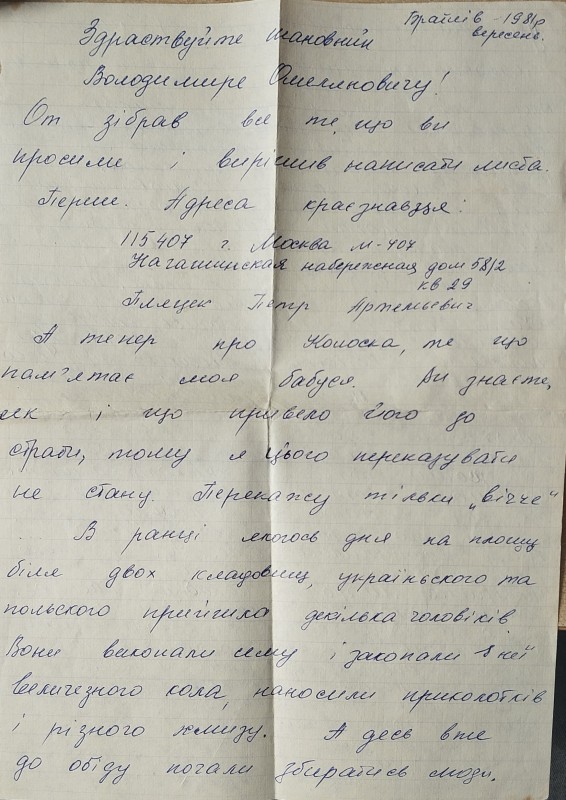 Браїлів - 1981р
вересень.
Здраствуйте шановний
Володимире Омеляновичу!
От зібрав все те, що ви
просили і вирішив написати листа.
Перше. Адреса краєзнавця:
115407 г. Москва М-407
Нагатинская набережная дом 58/2
кв 29
Петр Артемьевич
А тепер про Колоска, те що
пам'ятає моя бабуся. Ви знаєте,
як і що привело його до
страти, тому я цього переказувати
не стану. Перекажу тільки „вічче"
В ранці якогось дня на площу
біля двох кладовищ, українського та
польского прийшло декілька чоловіків
Вони викопали яму і закопали в неї
величезного кола, наносили приколотків
і різного хмизу. А десь вже
до обіду почали збиратись люди.